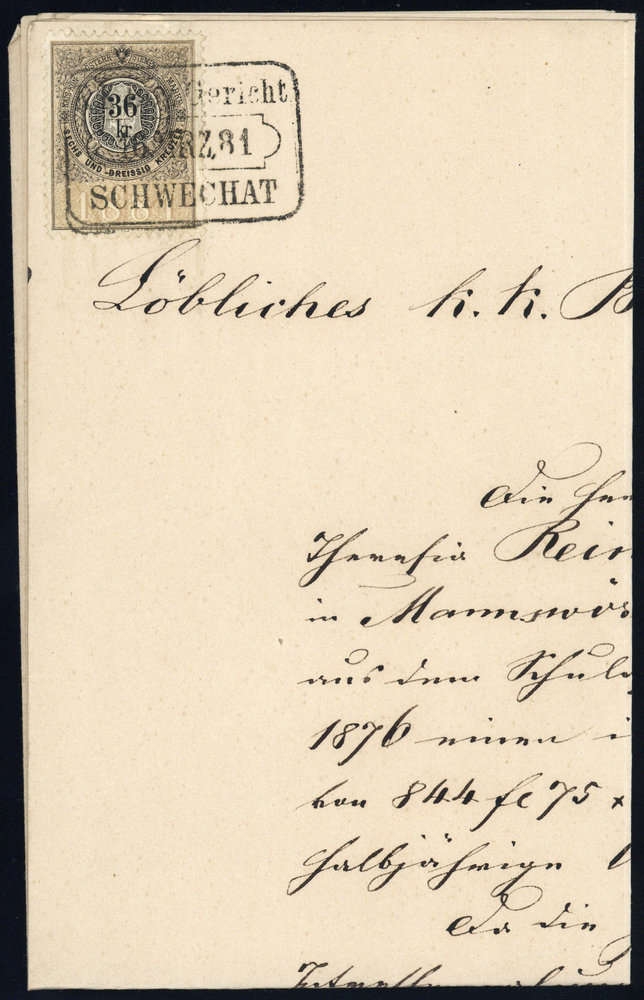 36
kr.
SECHS UND DREISSIG KREUZER
1881
Gericht
MRZ,81
SCHWECHAT
Löbliches k. k. B
Die
Theresia Rein
in Mannswör
aus dem Schul
1876 einen i
von 844 fl 75 x
halbjährige
Da die